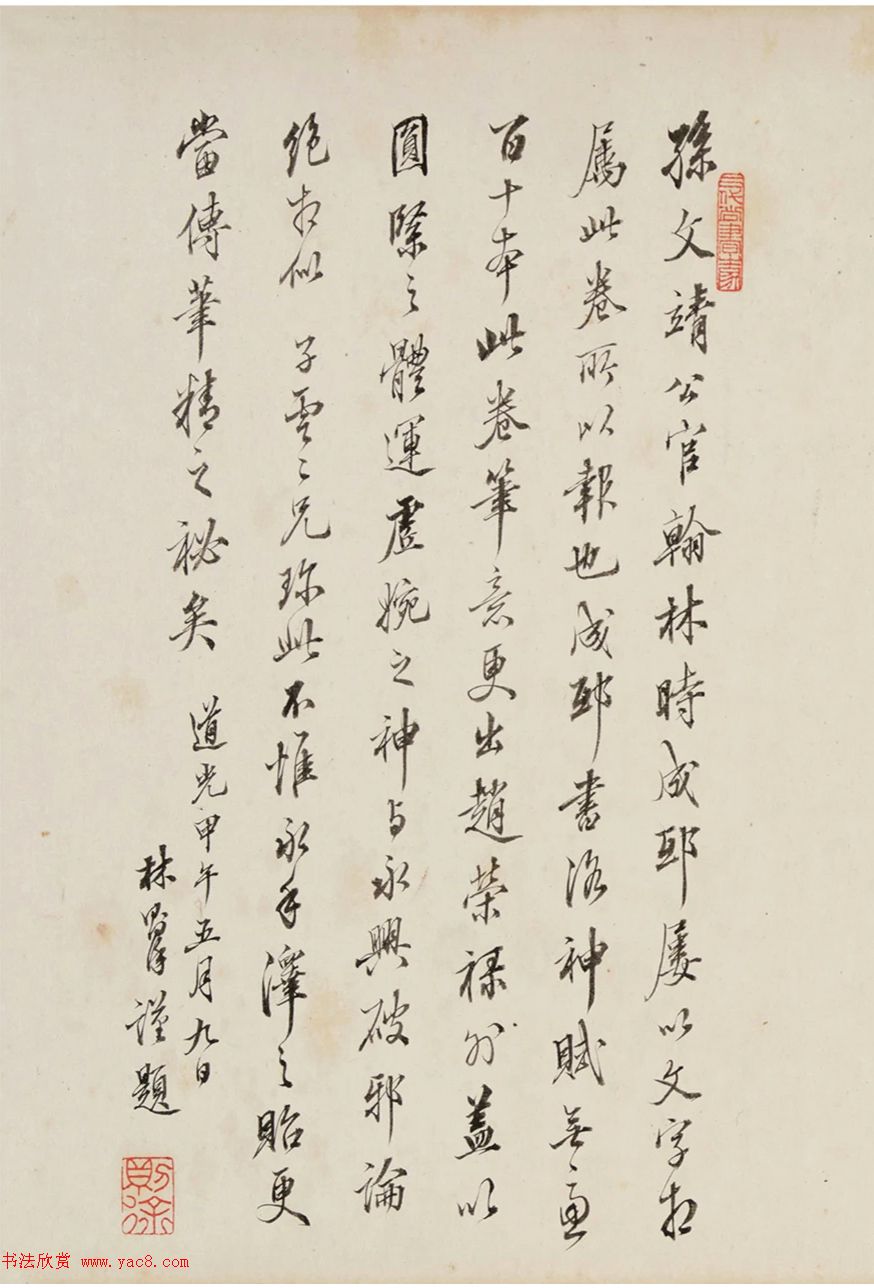 孫文靖公官翰林時成邸屢以文字相
屬此卷所以報也成邸書洛神賦無慮
百十本此卷筆意更出趙榮祿外蓋以
圓緊之體運虛婉之神與永興破邪論
絕相似子雲二兄珍此不惟永手澤之貽更
當傳筆精之祕矣
道光甲午五月九日
林則徐謹題
則徐
书法欣赏 www.yac8.com